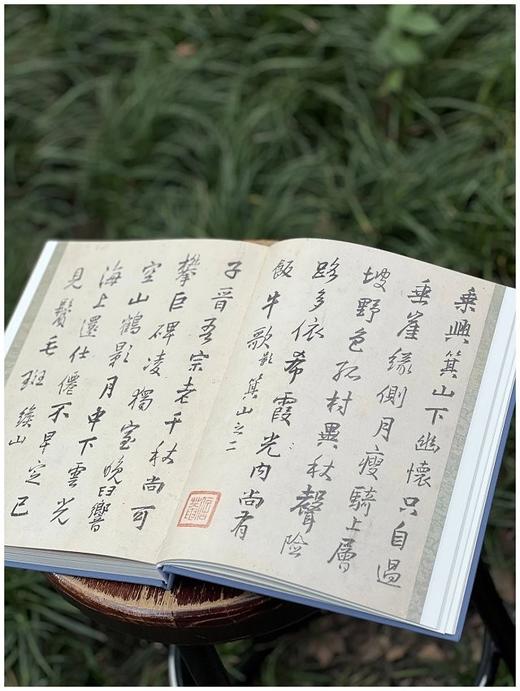 乘興箕山下幽懷只自過
垂崖緣側月瘦騎上層
坡野色孤村異秋聲險
路多依希霞光內尚有
飯牛歌 箕山之二
子晉吾宗老千秋尚可
攀巨碑凌獨室晚臼響
空山鶴影月中下雲光
海上還仕僊不早定已
見鬢毛斑 緱山